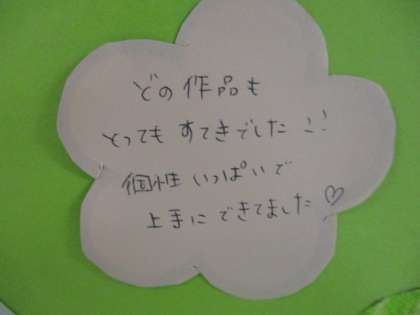 どの作品も
とっても すてきでした!!
個性いっぱいで
上手にできてました♡